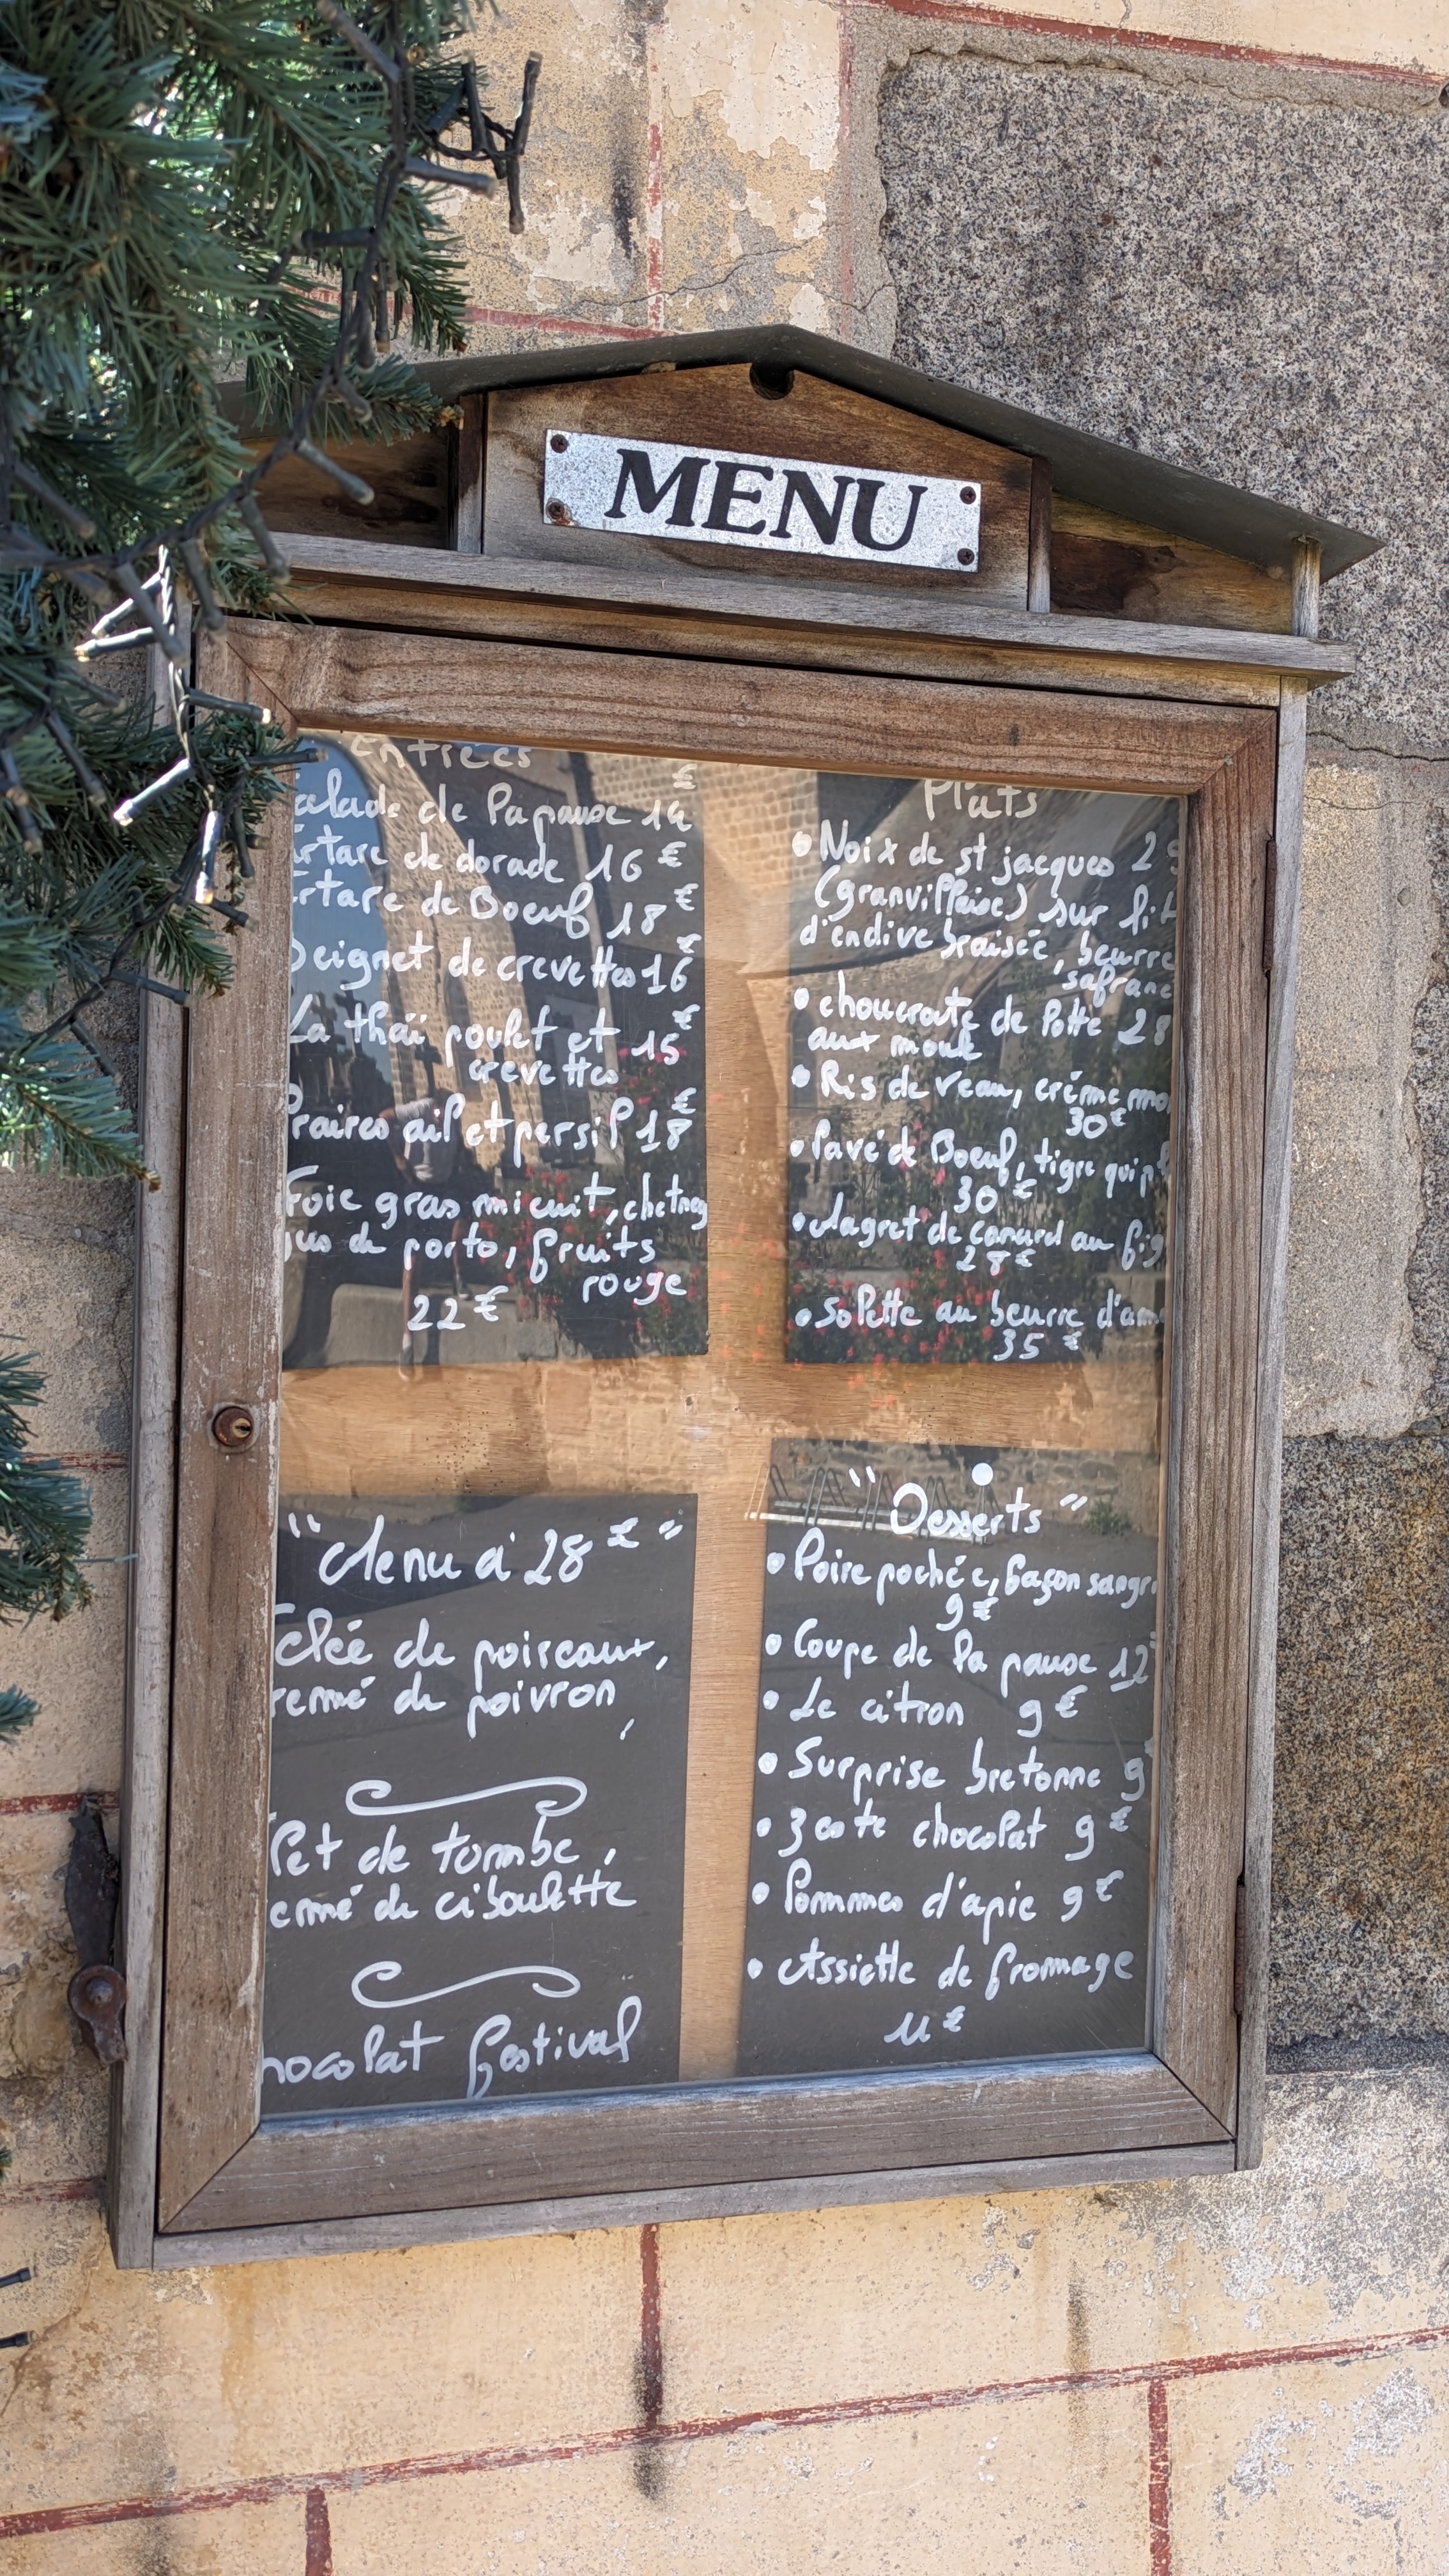 MENU
Entrées
alade de la pause 14 €
rtare de dorade 16 €
rtare de Boeuf 18 €
Beignet de crevettes 16 €
La thaï poulet et 15 €
crevettes
Praires ail et persil 18 €
Foie gras mi cuit, chetney
jus de porto, fruits
rouge
22 €
Plats
• Noix de st jacques 2
(granvillaise) sur lit
d'endive braisée, beurre
safrane
• choucroute de lotte 28
aux moule
• Ris de veau, crème mo
30 €
• Pavé de Boeuf, tigre qui pl
30 €
• Magret de canard au fig
28 €
• Solette au beurre d'am
35 €
"Menu à 28 €"
clée de poireaux,
remé de poivron
let de tombe,
emé de ciboulette
hocolat festival
"Desserts"
• Poire pochée, façon sangri
9 €
• Coupe de la pause 12
• Le citron 9 €
• Surprise bretonne 9
• 3 cote chocolat 9 €
• Pommes d'apie 9 €
• Assiette de fromage
11 €